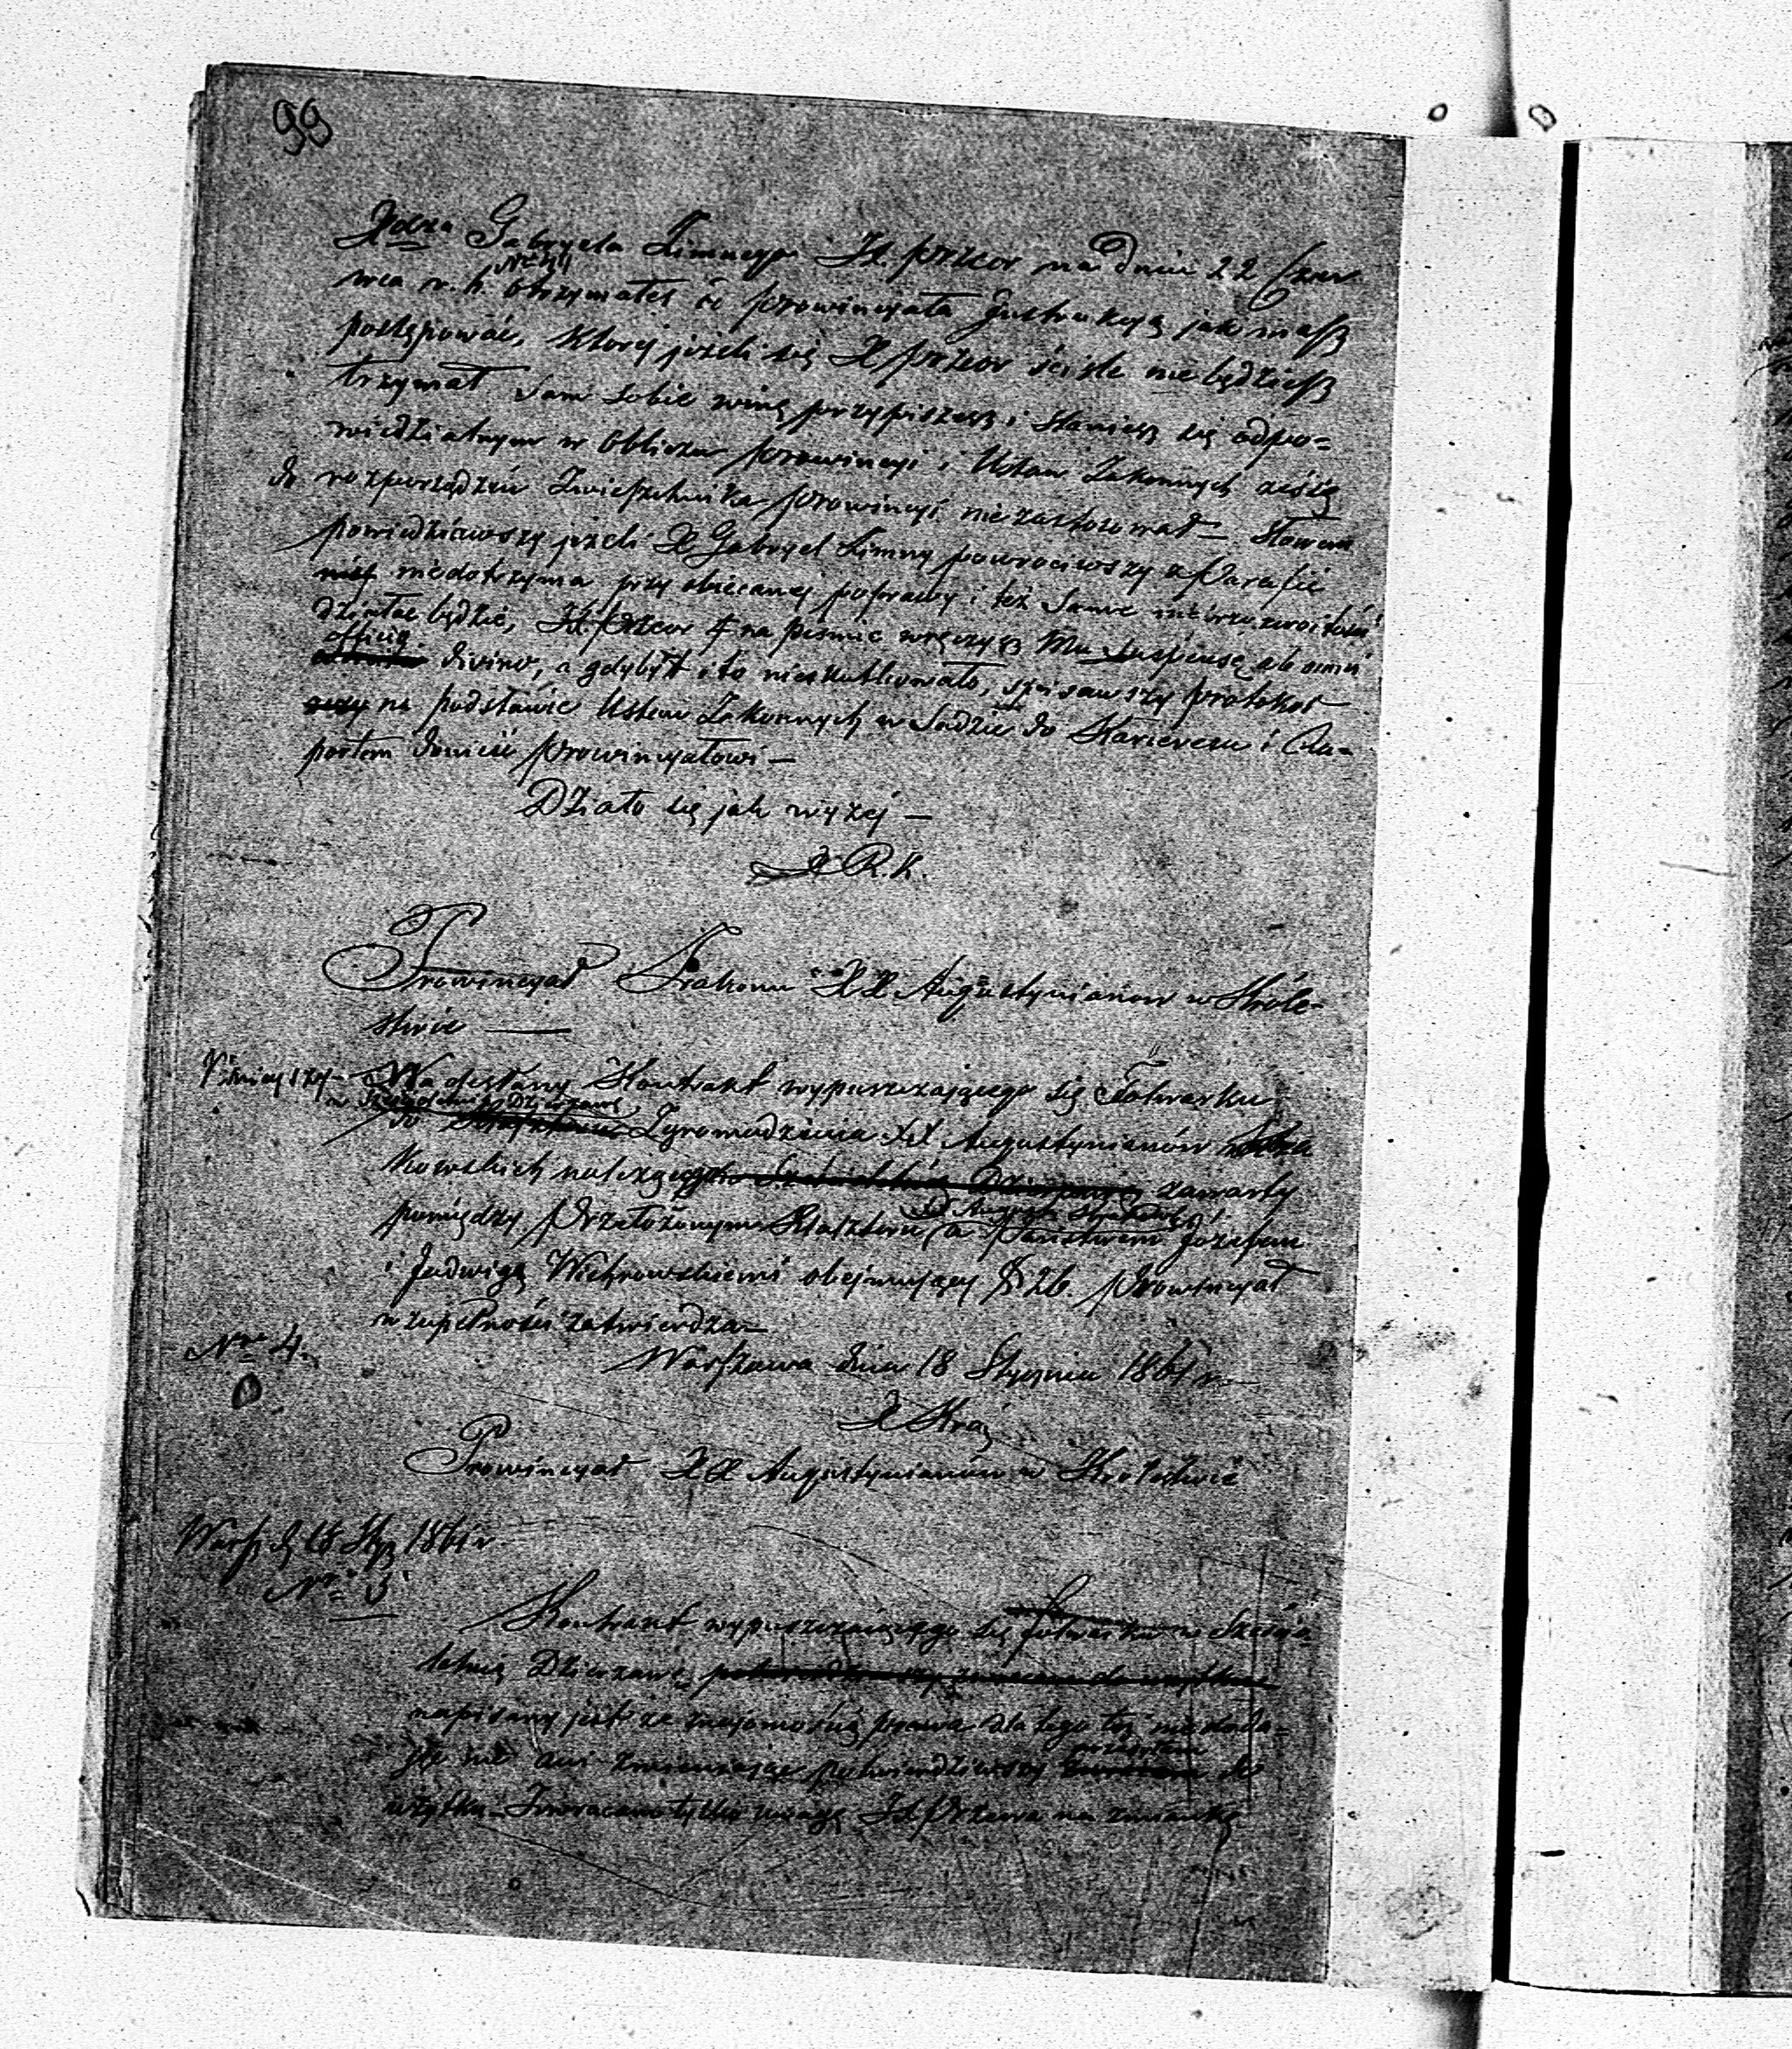 99
Xdza Gabryela Zimnego. Xd przeor na dniu 22 Czer-
wca r. b. Nro 44 otrzymałeś od prowincyała Instrukcyą jak masz
postępować, Ktorej jeżeli się X przeor ściśle nie będziesz
trzymał sam sobie winę przypiszesz i staniesz się odpo=
wiedzialnym w obliczu prowincyi i Ustaw Zakonnych żeś się
do rozporządzeń Zwierzchnika prowincyi nie zastosował — Słowem
powiedziawszy jeżeli X Gabryel Zimny powrociwszy z Parafii
niedotrzyma przyobiecanej poprawy i też same
działać będzie, Xd. przeor na piśmie wręczysz Mu suspensę ab omni
officio divino, a gdyby i to nieskutkowało, spisawszy protokoł
na podstawie Ustaw Zakonnych w Sądzie do
portem donieść prowincyałowi —
Działo się jak wyżej —
X R. K.
Prowincyał Zakonu XX Augustynianow w Króle-
stwie —
Niniejszy Nadesłany Kontrakt wypuszczającego się Folwarku
w Sześcioletnią Dzierzawę
do Zgromadzenia XX Augustynianów
kowskich należącego zawarty
pomiędzy Przełożonym Klasztoru a Państwem Józefem
i Jadwigą Wichrowskiemi obejmujący § 26. prowincyał
w zupełności zatwierdza —
Nro 4.
Warszawa dnia 18 Stycznia 1861 r.
X Kraj
Prowincyał XX Augustynianów w Krolestwie
Warsz d 18 Sty 1861 r
Nro 5
Kontrakt wypuszczającego się folwarku w Sześcio-
letnią Dzierzawę
napisany jest ze znajomością prawa dla tego też nie doda-
jąc nic ani zmieniając potwierdziwszy do
użytku — Zwracam tylko uwagę Xd. Przeora na